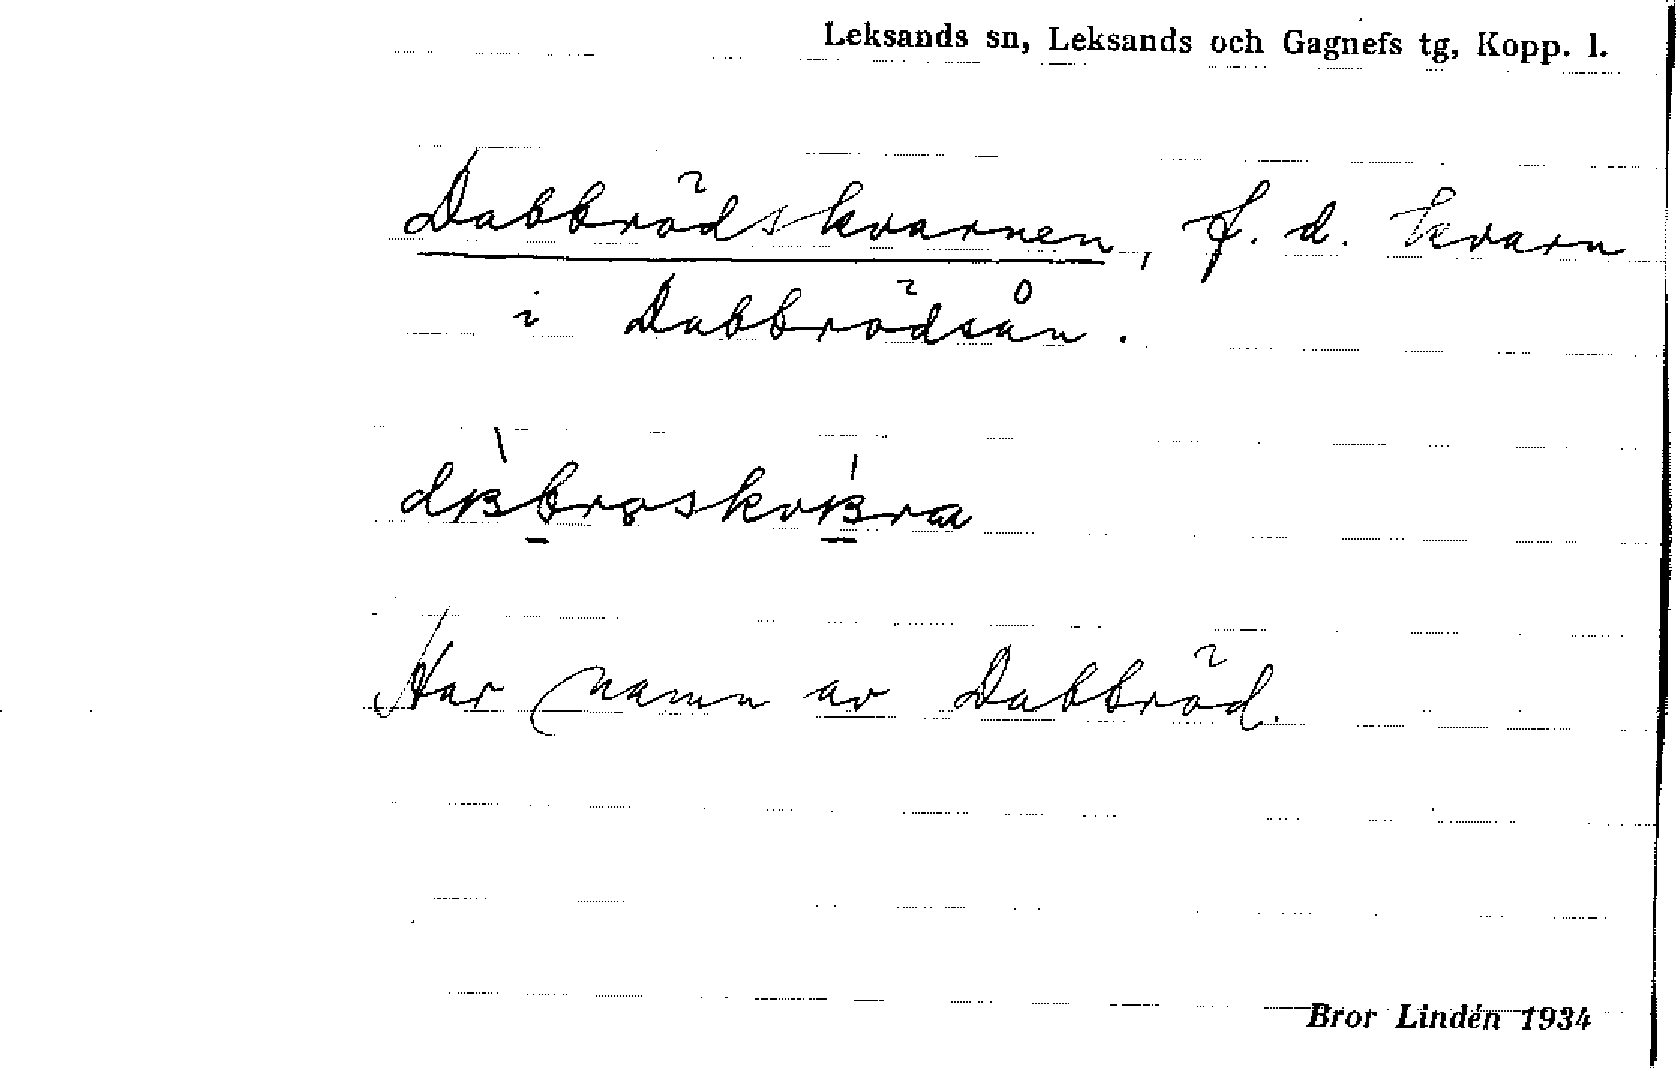 Leksands sn, Leksands och Gagnefs tg, Kopp. l.
Dabbrödskvarnen, f. d. kvarn
i Dabbrödsån.
Har namn av Dabbröd.
Bror Lindén 1934